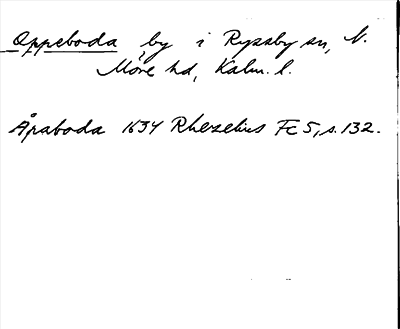 Oppeboda, by i Ryssby sn, N.
Möre hd, Kalm. l.
Åpaboda 1634 Rhezelius Fc 5, s. 132.